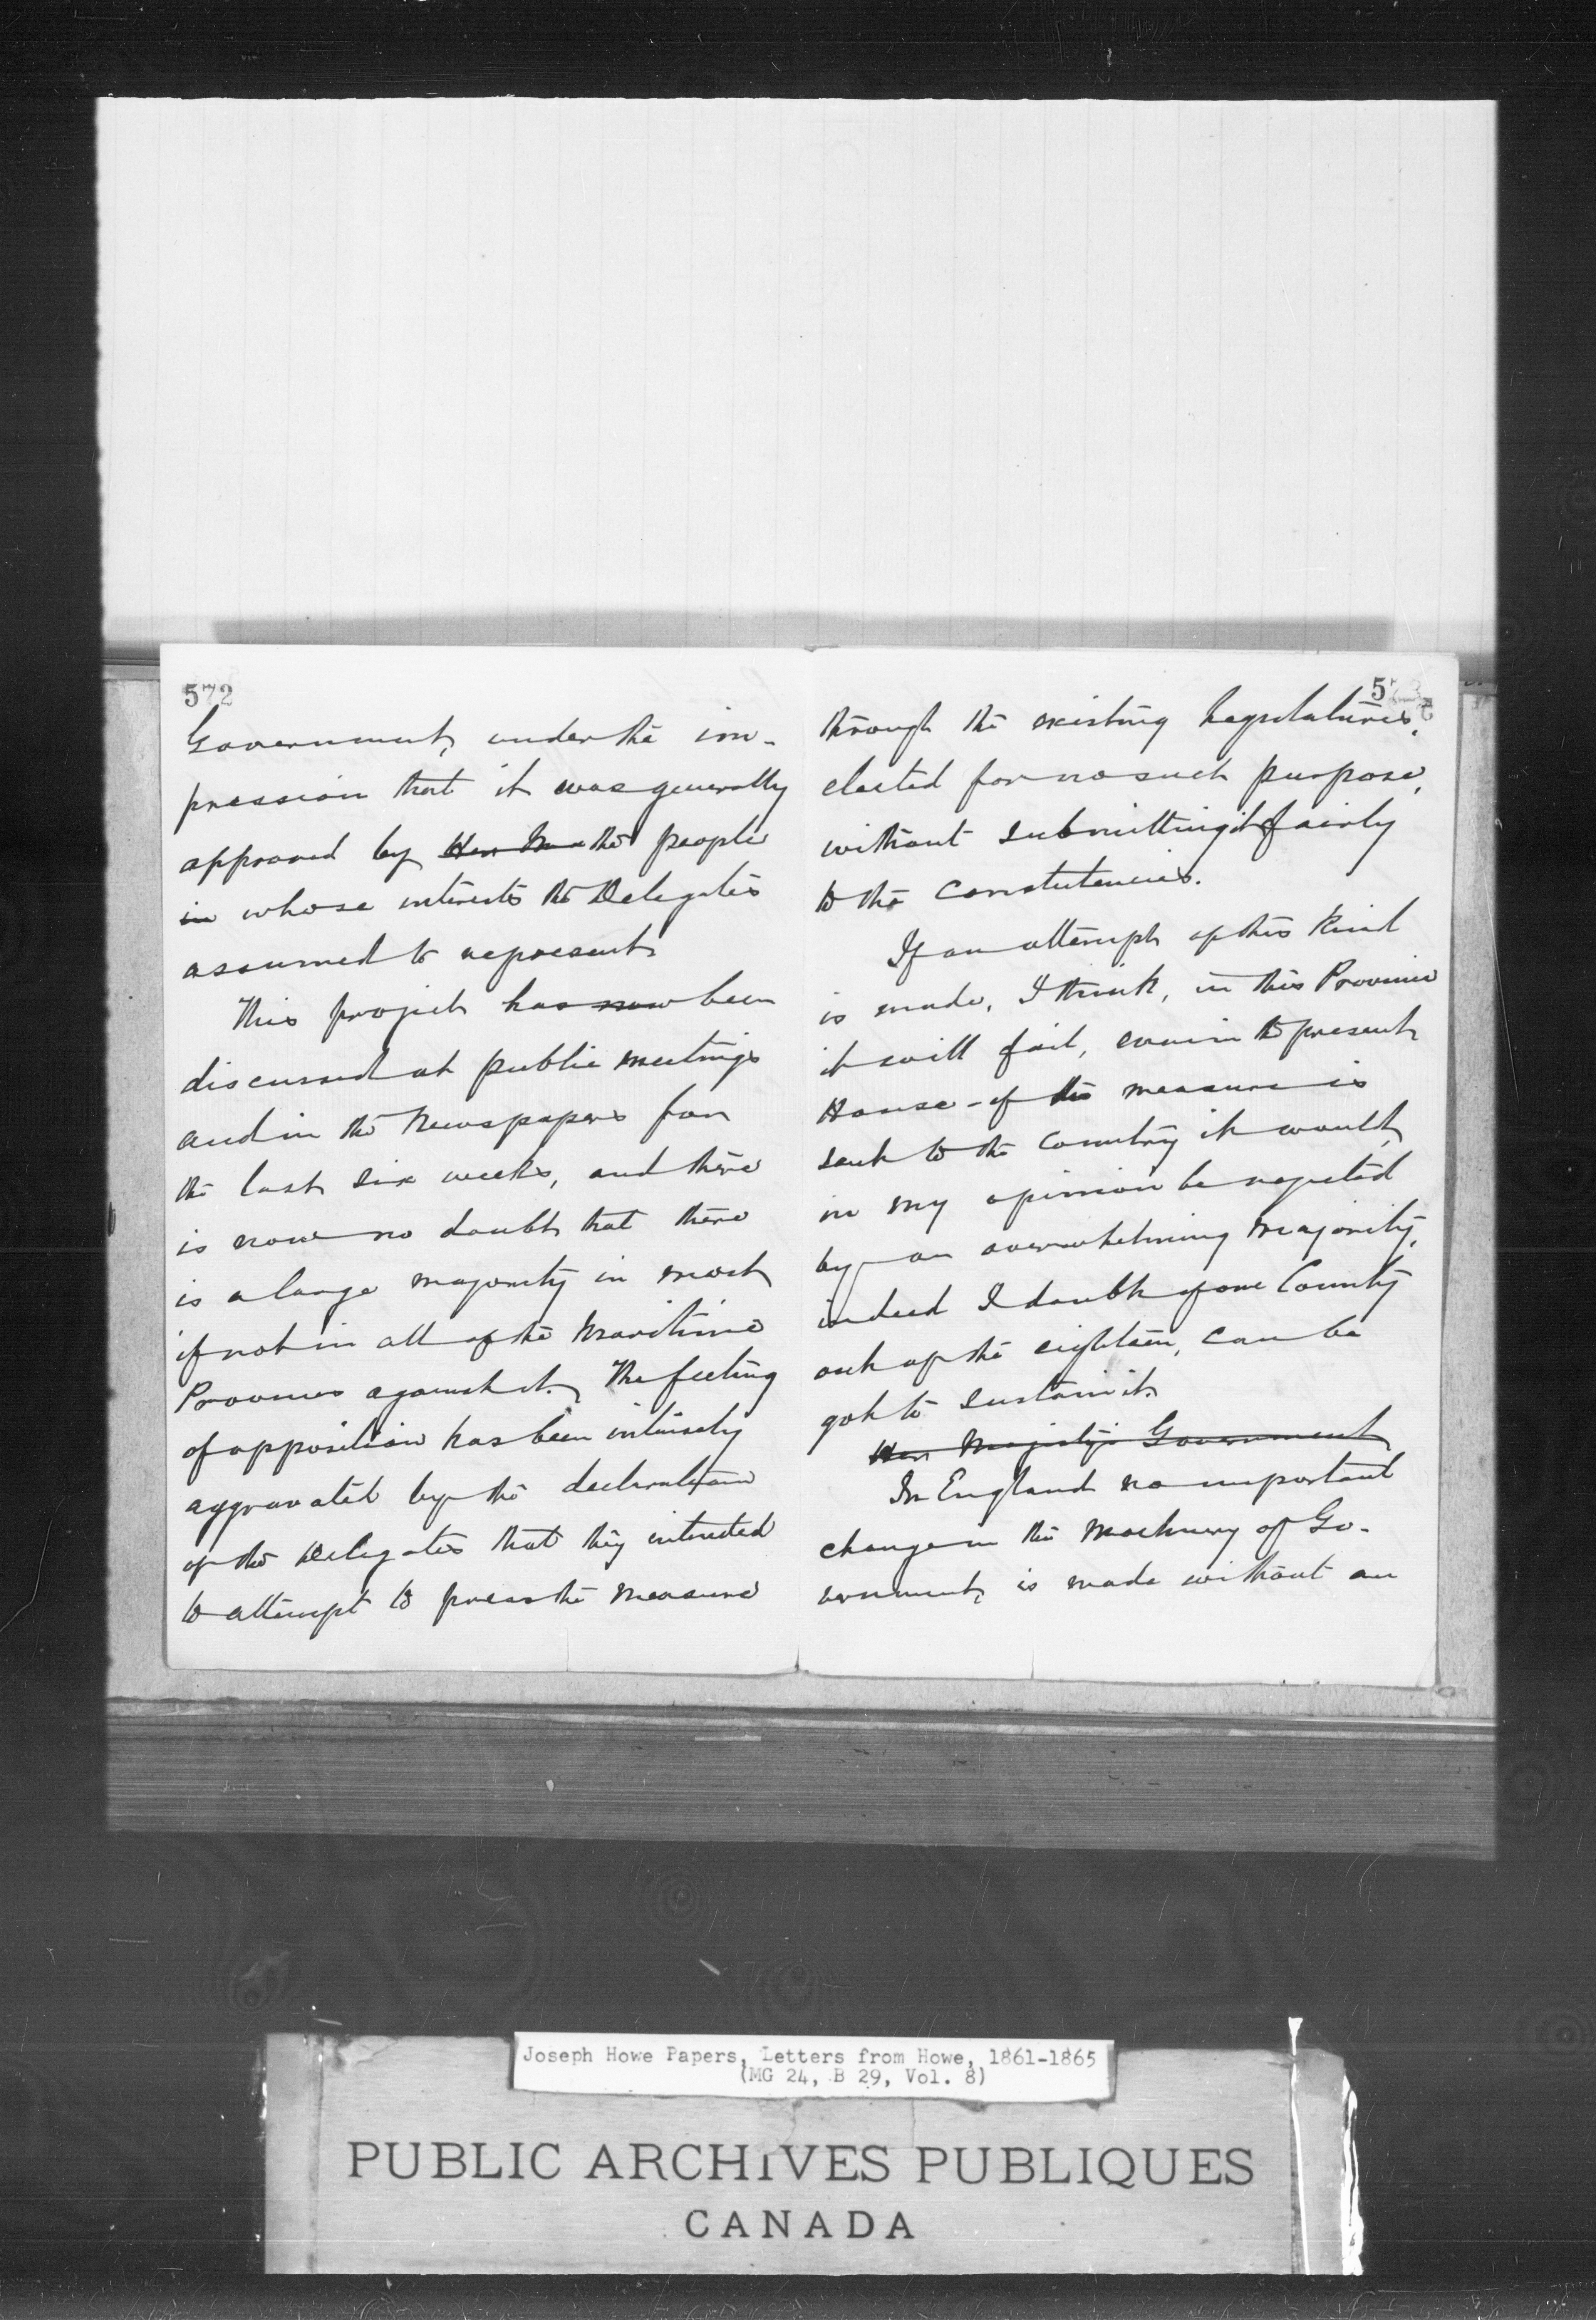 572
Government, under the im-
pression that it was generally
approved by Her Ma the people
in whose interests the Delegates
assumed to represent.
This project has now been
discussed at public meetings
and in the Newspapers for
the last six weeks, and there
is now no doubt that there
is a large majority in most
if not in all of the Maritime
Provinces against it. The feeling
of opposition has been intensely
aggravated by the declaration
of the Delegates that they intended
to attempt to press the measure
573
through the existing Legislatures,
elected for no such purpose,
without submitting it fairly
to the constituencies.
If an attempt of this kind
is made, I think, in this Province
it will fail, even in the present
House - if the measure is
sent to the Country it would,
in my opinion be rejected
by an overwhelming majority,
indeed I doubt if one County
out of the eighteen, can be
got to sustain it.
Her Majesty's Government
In England no important
change in the Machinery of Go-
vernment, is made without an
Joseph Howe Papers, Letters from Howe, 1861-1865
(MG 24, B 29, Vol. 8)
PUBLIC ARCHIVES PUBLIQUES
CANADA